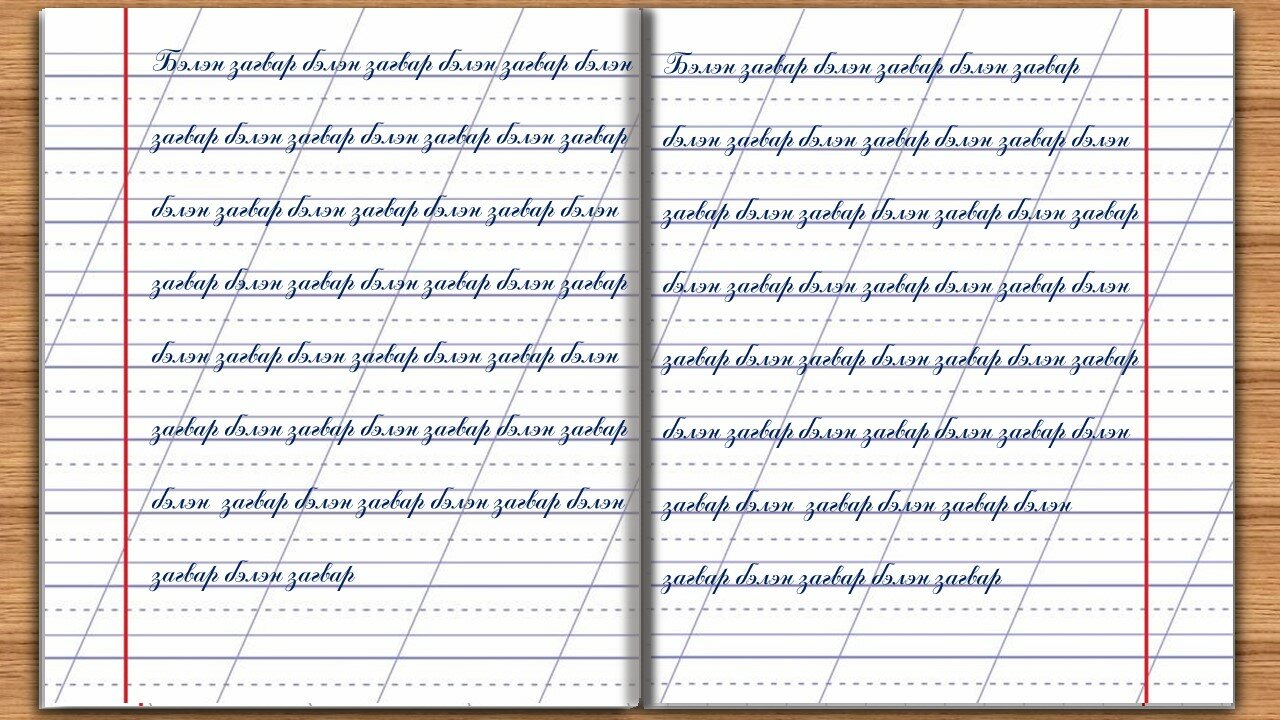 Бэлэн загвар бэлэн загвар бэлэн загвар бэлэн
загвар бэлэн загвар бэлэн загвар бэлэн загвар
бэлэн загвар бэлэн загвар бэлэн загвар бэлэн
загвар бэлэн загвар бэлэн загвар бэлэн загвар
бэлэн загвар бэлэн загвар бэлэн загвар бэлэн
загвар бэлэн загвар бэлэн загвар бэлэн загвар
бэлэн загвар бэлэн загвар бэлэн загвар бэлэн
загвар бэлэн загвар
Бэлэн загвар бэлэн загвар бэлэн загвар
бэлэн загвар бэлэн загвар бэлэн загвар бэлэн
загвар бэлэн загвар бэлэн загвар бэлэн загвар
бэлэн загвар бэлэн загвар бэлэн загвар бэлэн
загвар бэлэн загвар бэлэн загвар бэлэн загвар
бэлэн загвар бэлэн загвар бэлэн загвар бэлэн
загвар бэлэн загвар бэлэн загвар бэлэн
загвар бэлэн загвар бэлэн загвар